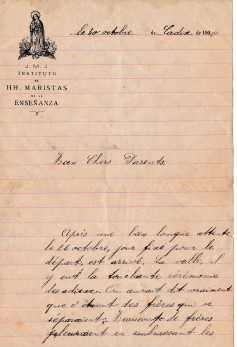 J. M. J.
INSTITUTO
DE
HH. MARISTAS
DE LA
ENSEÑANZA
le 30 octobre de Cadix de 190
Bien Chers Parents
Après une bien longue attente
le 26 octobre, jour fixé pour le
départ, est arrivé. La veille, il
y eut la touchante cérémonie
des adieux. On aurait dit vraiment
que c'étaient des frères qui se
séparaient. Beaucoup de frères
pleuraient en embrassant les